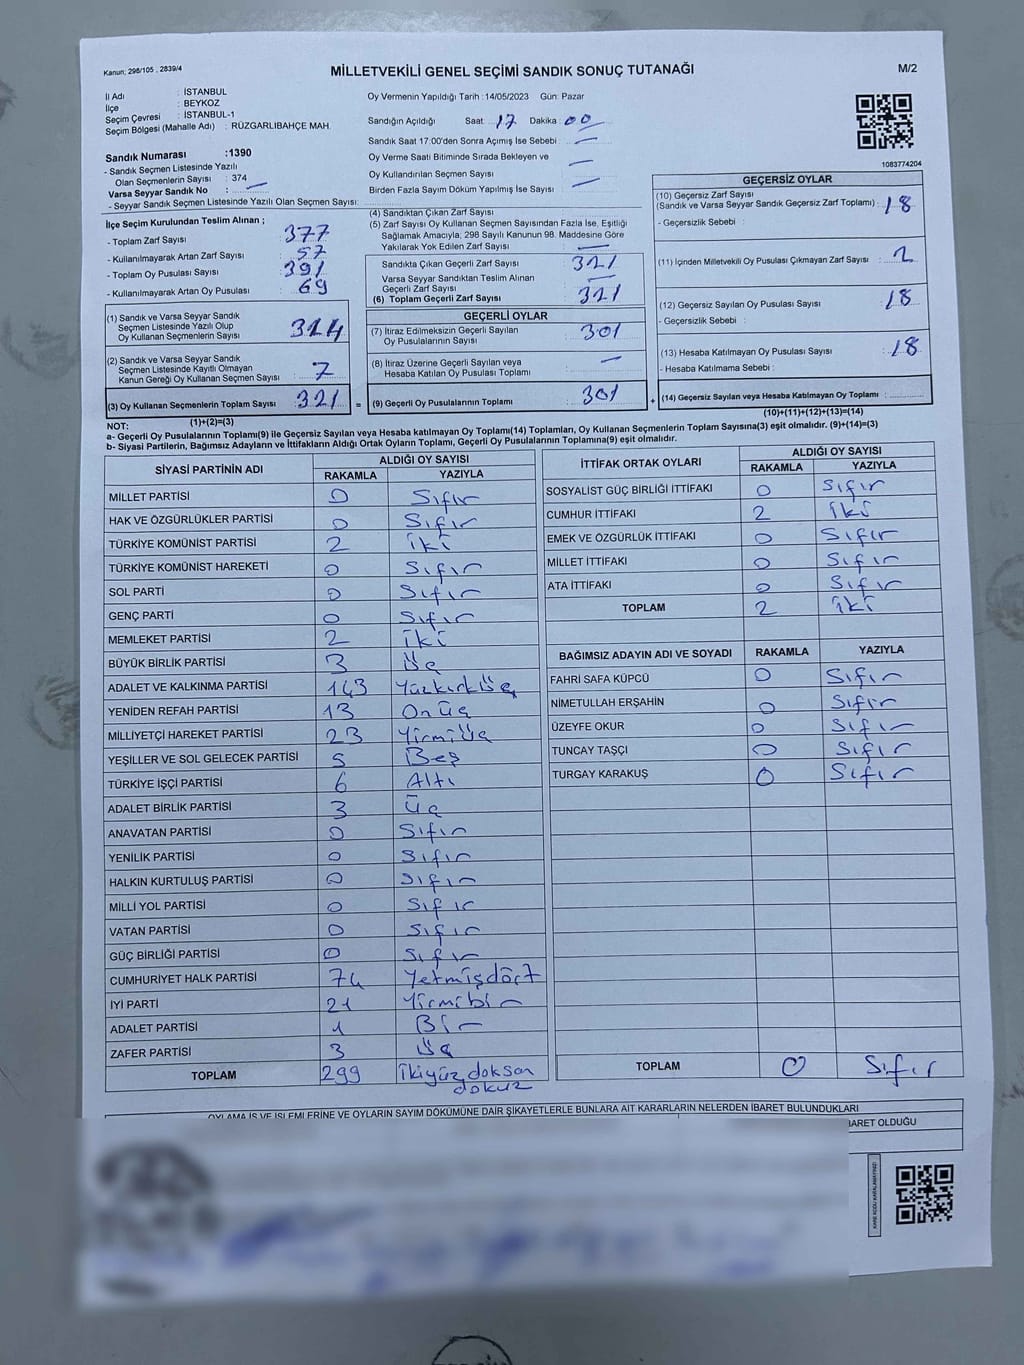 Kanun; 298/105 , 2839/4
MİLLETVEKİLİ GENEL SEÇİMİ SANDIK SONUÇ TUTANAĞI
M/2
İl Adı : İSTANBUL
İlçe : BEYKOZ
Seçim Çevresi : İSTANBUL-1
Seçim Bölgesi (Mahalle Adı) : RÜZGARLIBAHÇE MAH.
Sandık Numarası :1390
- Sandık Seçmen Listesinde Yazılı
Olan Seçmenlerin Sayısı : 374
Varsa Seyyar Sandık No : —
- Seyyar Sandık Seçmen Listesinde Yazılı Olan Seçmen Sayısı:
Oy Vermenin Yapıldığı Tarih :14/05/2023 Gün: Pazar
Sandığın Açıldığı Saat: 17 Dakika: 00
Sandık Saat 17.00'den Sonra Açımış İse Sebebi : —
Oy Verme Saati Bitiminde Sırada Bekleyen ve
Oy Kullandırılan Seçmen Sayısı : —
Birden Fazla Sayım Döküm Yapılmış İse Sayısı : —
1083774204
İlçe Seçim Kurulundan Teslim Alınan ;
- Toplam Zarf Sayısı 377
- Kullanılmayarak Artan Zarf Sayısı 57
- Toplam Oy Pusulası Sayısı 391
- Kullanılmayarak Artan Oy Pusulası 69
(1) Sandık ve Varsa Seyyar Sandık
Seçmen Listesinde Yazılı Olup
Oy Kullanan Seçmenlerin Sayısı 314
(2) Sandık ve Varsa Seyyar Sandık
Seçmen Listesinde Kayıtlı Olmayan
Kanun Gereği Oy Kullanan Seçmen Sayısı 7
(3) Oy Kullanan Seçmenlerin Toplam Sayısı 321 =
(1)+(2)=(3)
(4) Sandıktan Çıkan Zarf Sayısı
(5) Zarf Sayısı Oy Kullanan Seçmen Sayısından Fazla İse, Eşitliği
Sağlamak Amacıyla; 298 Sayılı Kanunun 98. Maddesine Göre
Yakılarak Yok Edilen Zarf Sayısı : —
Sandıkta Çıkan Geçerli Zarf Sayısı 321
Varsa Seyyar Sandıktan Teslim Alınan
Geçerli Zarf Sayısı —
(6) Toplam Geçerli Zarf Sayısı 321
GEÇERLİ OYLAR
(7) İtiraz Edilmeksizin Geçerli Sayılan
Oy Pusulalarının Sayısı : 301
(8) İtiraz Üzerine Geçerli Sayılan veya
Hesaba Katılan Oy Pusulası Toplamı —
(9) Geçerli Oy Pusulalarının Toplamı 301 +
GEÇERSİZ OYLAR
(10) Geçersiz Zarf Sayısı
(Sandık ve Varsa Seyyar Sandık Geçersiz Zarf Toplamı) : 18
- Geçersizlik Sebebi :
(11) İçinden Milletvekili Oy Pusulası Çıkmayan Zarf Sayısı : 2
(12) Geçersiz Sayılan Oy Pusulası Sayısı : 18
- Geçersizlik Sebebi :
(13) Hesaba Katılmayan Oy Pusulası Sayısı : 18
- Hesaba Katılmama Sebebi :
(14) Geçersiz Sayılan veya Hesaba Katılmayan Oy Toplamı :
(10)+(11)+(12)+(13)=(14)
NOT:
a- Geçerli Oy Pusulalarının Toplamı(9) ile Geçersiz Sayılan veya Hesaba Katılmayan Oy Toplamı(14) Toplamları, Oy Kullanan Seçmenlerin Toplam Sayısına(3) eşit olmalıdır. (9)+(14)=(3)
b- Siyasi Partilerin, Bağımsız Adayların ve İttifakların Aldığı Ortak Oyların Toplamı, Geçerli Oy Pusulalarının Toplamına(9) eşit olmalıdır.
SİYASİ PARTİNİN ADI ALDIĞI OY SAYISI
RAKAMLA YAZIYLA
MİLLET PARTİSİ 0 Sıfır
HAK VE ÖZGÜRLÜKLER PARTİSİ 0 Sıfır
TÜRKİYE KOMÜNİST PARTİSİ 2 iki
TÜRKİYE KOMÜNİST HAREKETİ 0 Sıfır
SOL PARTİ 0 Sıfır
GENÇ PARTİ 0 Sıfır
MEMLEKET PARTİSİ 2 iki
BÜYÜK BİRLİK PARTİSİ 3 Üç
ADALET VE KALKINMA PARTİSİ 143 Yüzkırküç
YENİDEN REFAH PARTİSİ 13 Onüç
MİLLİYETÇİ HAREKET PARTİSİ 23 Yirmiüç
YEŞİLLER VE SOL GELECEK PARTİSİ 5 Beş
TÜRKİYE İŞÇİ PARTİSİ 6 Altı
ADALET BİRLİK PARTİSİ 3 Üç
ANAVATAN PARTİSİ 0 Sıfır
YENİLİK PARTİSİ 0 Sıfır
HALKIN KURTULUŞ PARTİSİ 0 Sıfır
MİLLİ YOL PARTİSİ 0 Sıfır
VATAN PARTİSİ 0 Sıfır
GÜÇ BİRLİĞİ PARTİSİ 0 Sıfır
CUMHURİYET HALK PARTİSİ 74 Yetmişdört
İYİ PARTİ 21 Yirmibir
ADALET PARTİSİ 1 Bir
ZAFER PARTİSİ 3 Üç
TOPLAM 299 ikiyüz doksan
dokuz
İTTİFAK ORTAK OYLARI ALDIĞI OY SAYISI
RAKAMLA YAZIYLA
SOSYALİST GÜÇ BİRLİĞİ İTTİFAKI 0 Sıfır
CUMHUR İTTİFAKI 2 iki
EMEK VE ÖZGÜRLÜK İTTİFAKI 0 Sıfır
MİLLET İTTİFAKI 0 Sıfır
ATA İTTİFAKI 0 Sıfır
TOPLAM 2 iki
BAĞIMSIZ ADAYIN ADI VE SOYADI RAKAMLA YAZIYLA
FAHRİ SAFA KÜPCÜ 0 Sıfır
NİMETULLAH ERŞAHİN 0 Sıfır
ÜZEYFE OKUR 0 Sıfır
TUNCAY TAŞÇI 0 Sıfır
TURGAY KARAKUŞ 0 Sıfır
TOPLAM 0 Sıfır
OYLAMA İŞ VE İŞLEMLERİNE VE OYLARIN SAYIM DÖKÜMÜNE DAİR ŞİKAYETLERLE BUNLARA AİT KARARLARIN NELERDEN İBARET BULUNDUKLARI
BARET OLDUĞU